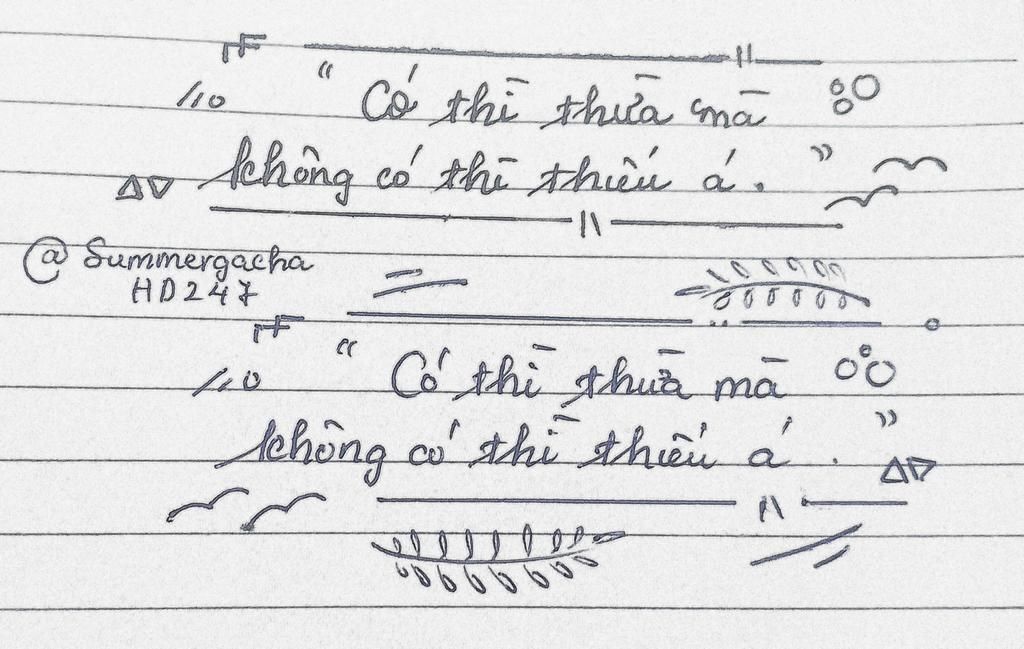 “ Có thì thừa mà
không có thì thiếu á. ”
@ Summergacha
HD247
“ Có thì thừa mà
không có thì thiếu á . ”